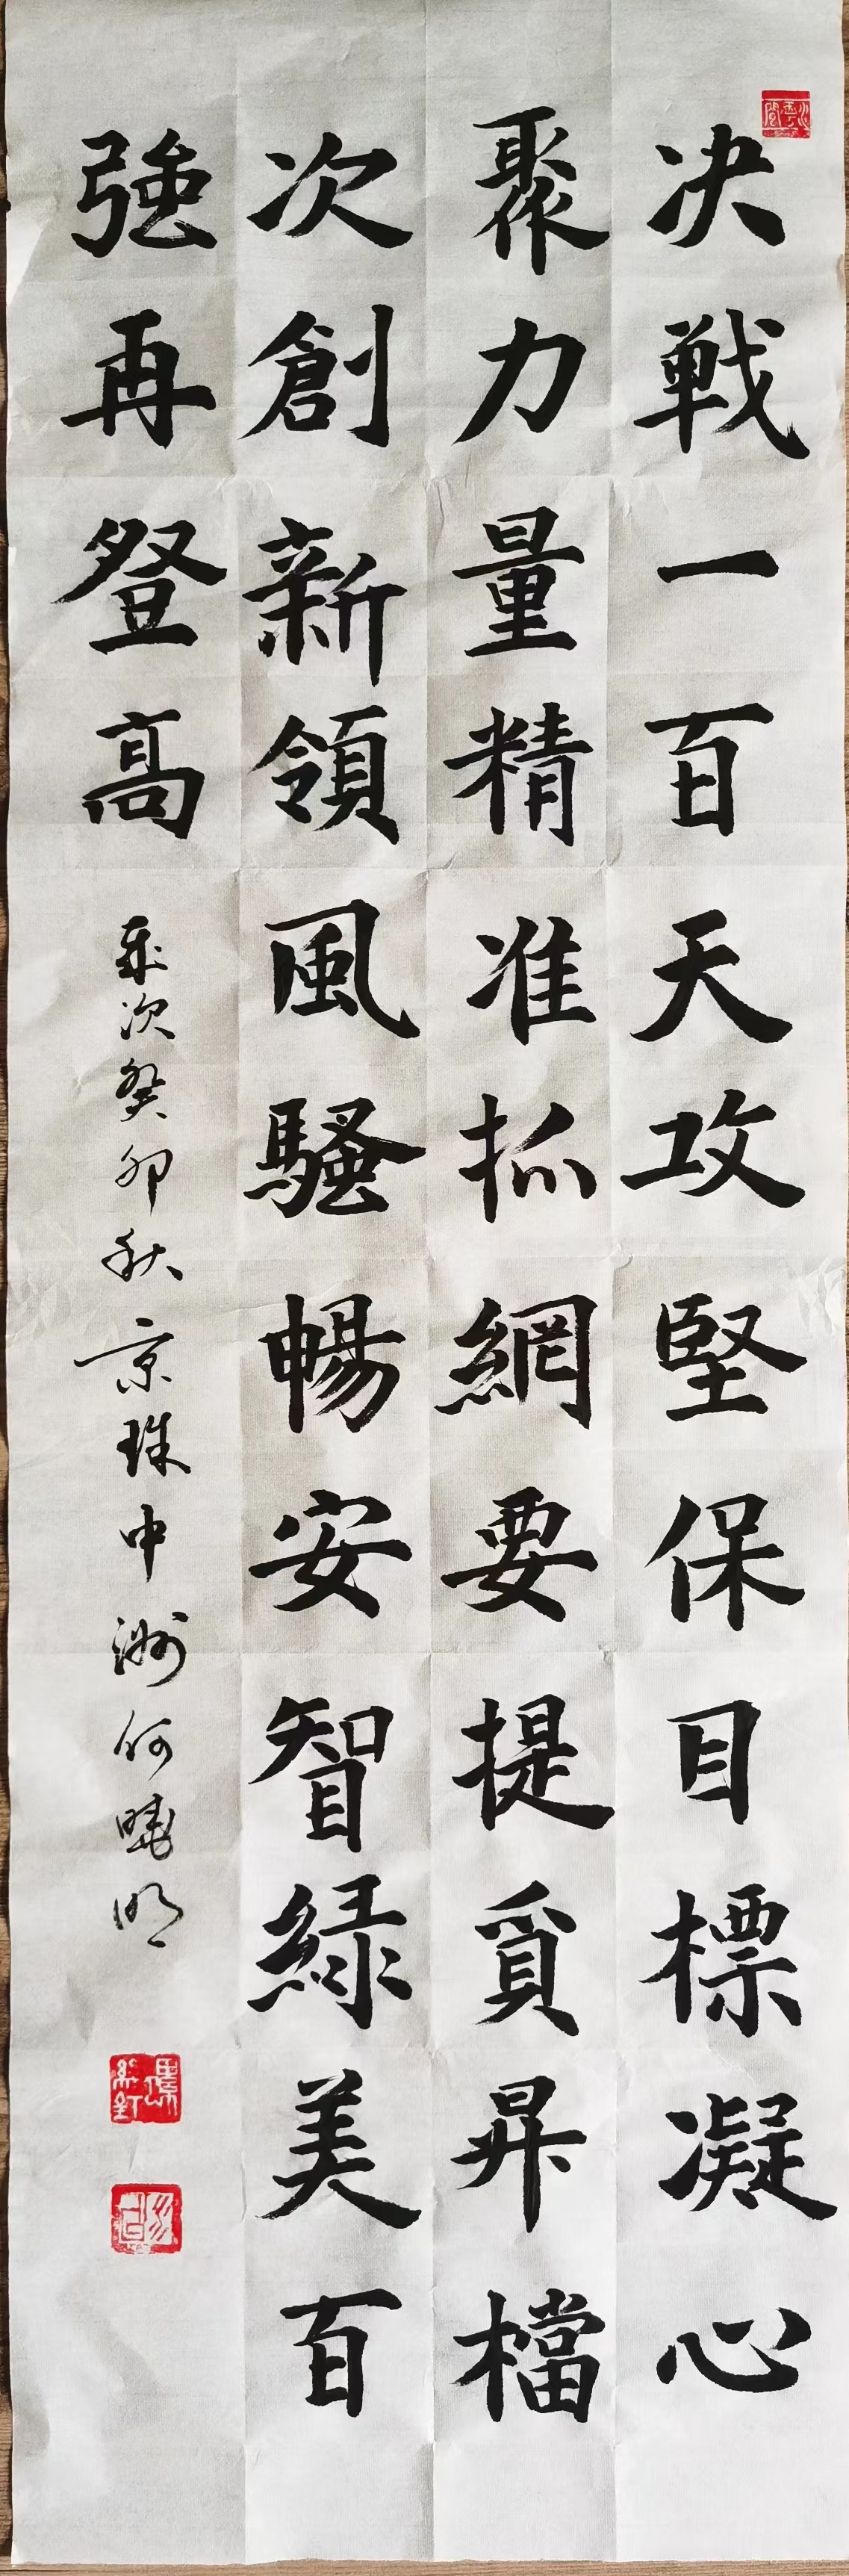 决戰一百天攻堅保目標凝心
聚力量精准抓網要提質昇檔
次創新領風騷暢安智綠美百
強再登高
歲次癸卯秋京珠中洲何曉明